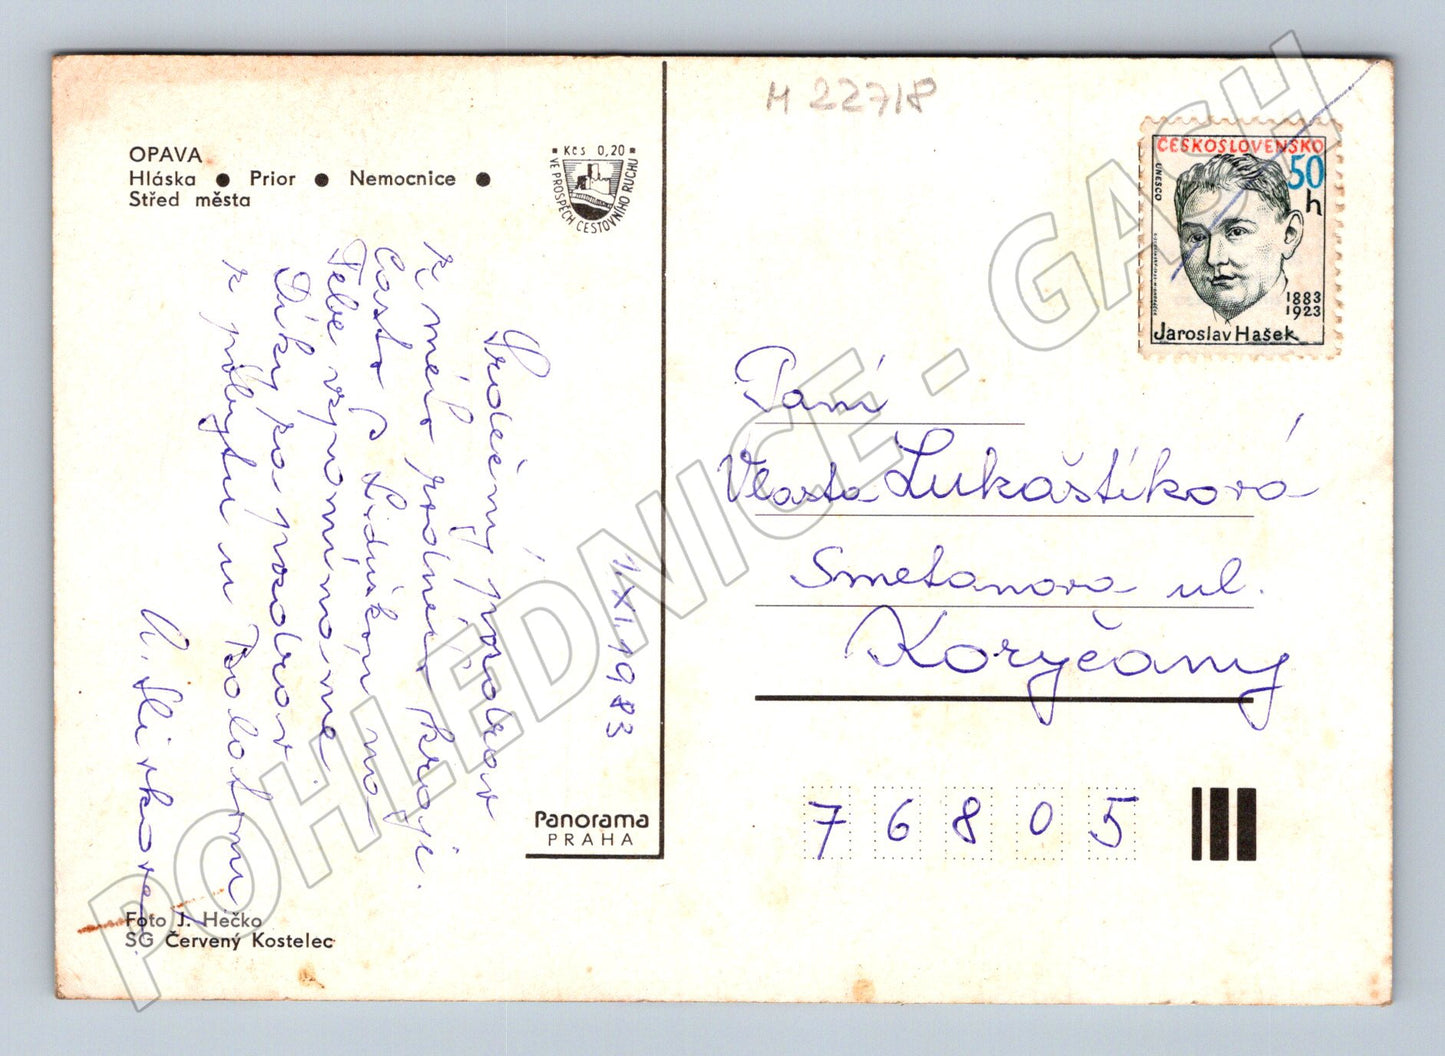 M 22718
OPAVA
Hláska ● Prior ● Nemocnice ●
Střed města
Kčs 0,20
VE PROSPĚCH CESTOVNÍHO RUCHU
ČESKOSLOVENSKO
UNESCO
50
h
1883
1923
Jaroslav Hašek
1.XI.1983
Srdečný pozdrav
z mého rodného kraje.
Často s Liduškou na
Tebe vzpomínáme
Díky za pozdrav
z pobytu u
Paní
Vlasta Lukaštíková
Smetanova ul.
Koryčany
76805
Panorama
PRAHA
Foto J. Hečko
SG Červený Kostelec
POHLEDNICE - GASH